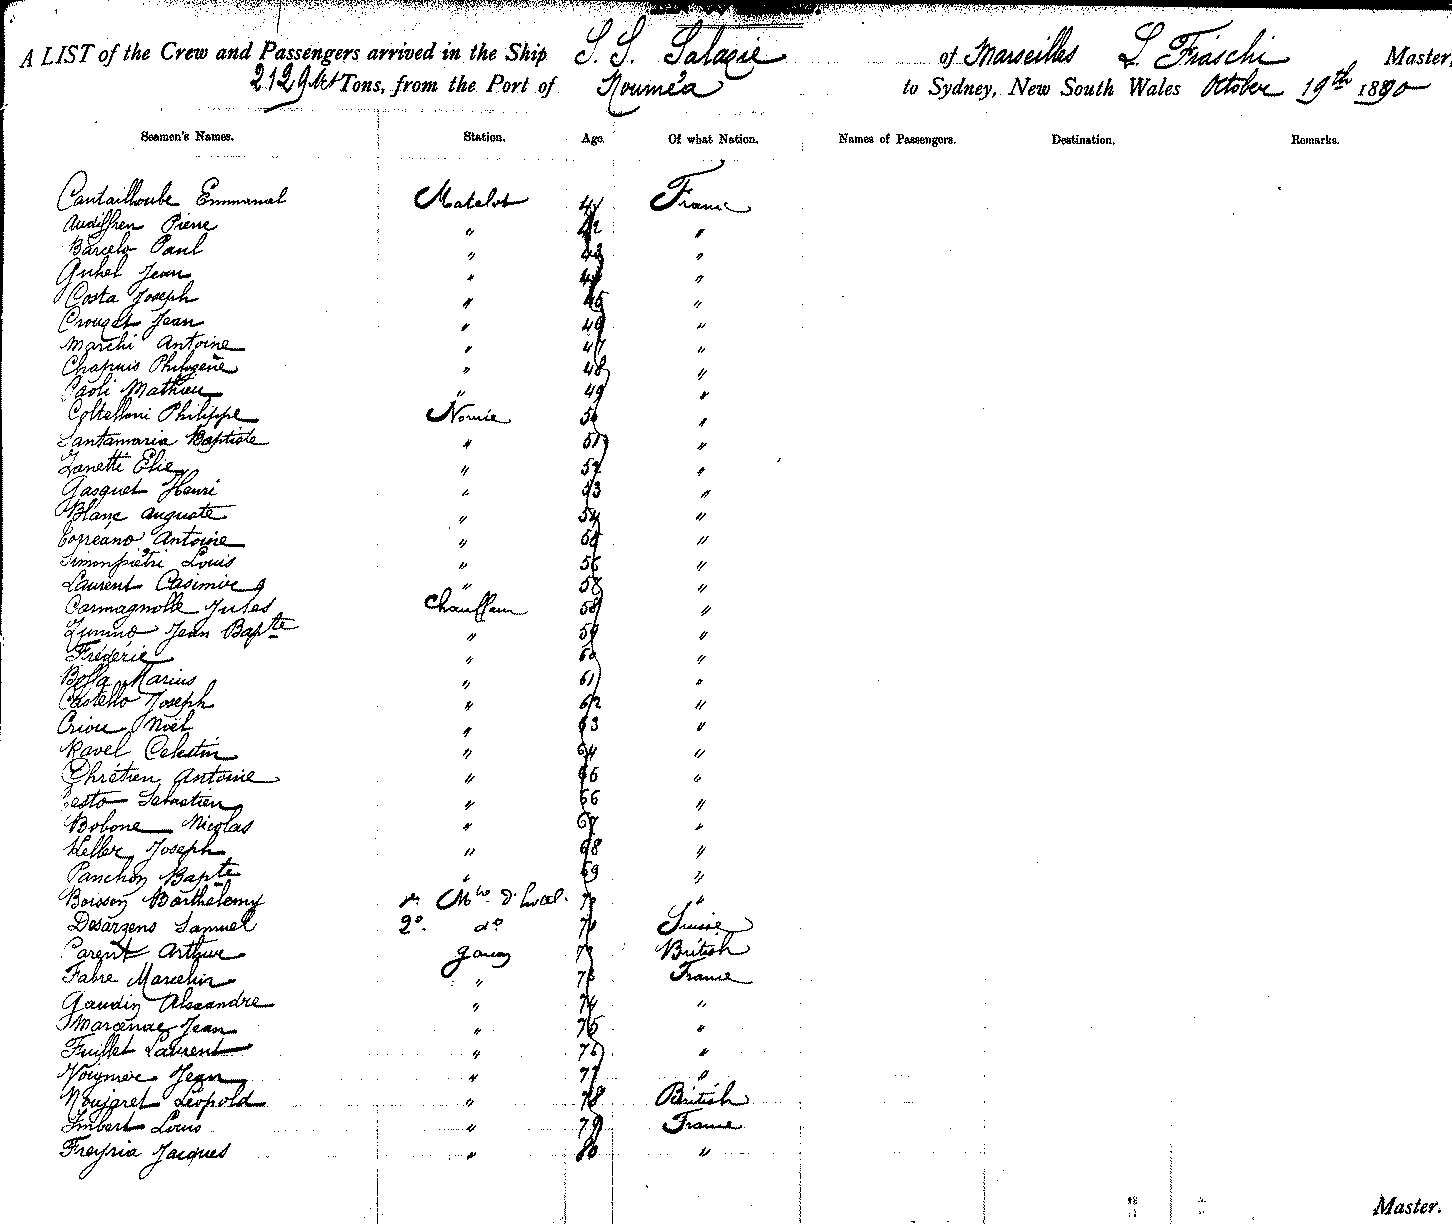 A LIST of the Crew and Passengers arrived in the Ship S. S. Salazie of Marseilles L. Fiaschi Master,
2129 Tons, from the Port of Nouméa to Sydney, New South Wales October 19th 1890
Seamen's Names. Station. Age. Of what Nation. Names of Passengers. Destination. Remarks.
Cantailloube Emmanuel Matelot 41 France
Audiffren Pierre " 42 "
Barcelo Paul " 43 "
Jean " 44 "
Costa Joseph " 45 "
Crouzet Jean " 46 "
Marchi Antoine " 47 "
Chapuis Philogène " 48 "
Paoli Mathieu " 49 "
Coltelloni Philippe Novice 50 "
Santamaria Baptiste " 51 "
Zanetti Elie " 52 "
Gasquet Henri " 53 "
Blanc Auguste " 54 "
Antoine " 55 "
Simonpiétri Louis " 56 "
Laurent Casimir " 57 "
Carmagnolle Jules Chauffeur 58 "
Zunino Jean Bapte " 59 "
Frédéric " 60 "
Marius " 61 "
Castello Joseph " 62 "
Criou Noël " 63 "
Ravel Celestin " 64 "
Chrétien Antoine " 65 "
Sebastien " 66 "
Bobone Nicolas " 67 "
Keller Joseph " 68 "
Panchon Bapte " 69 "
Boisson Barthélemy Mtre d'hotel. 70 "
Desarzens Samuel 2º. dº 71 Suisse
Parent Arthur garçon 72 British
Fabre Marcelin " 73 France
Gaudin Alexandre " 74 "
Marcenac Jean " 75 "
Fuillet Laurent " 76 "
Jean " 77 "
Noujaret Léopold " 78 British
Imbert Louis " 79 France
Freyria Jacques " 80 "
Master.